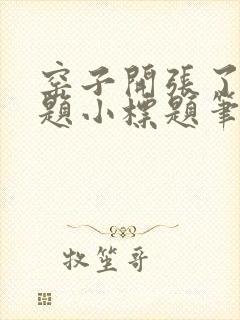 窑子開張了
題小標題筆
牧笙哥